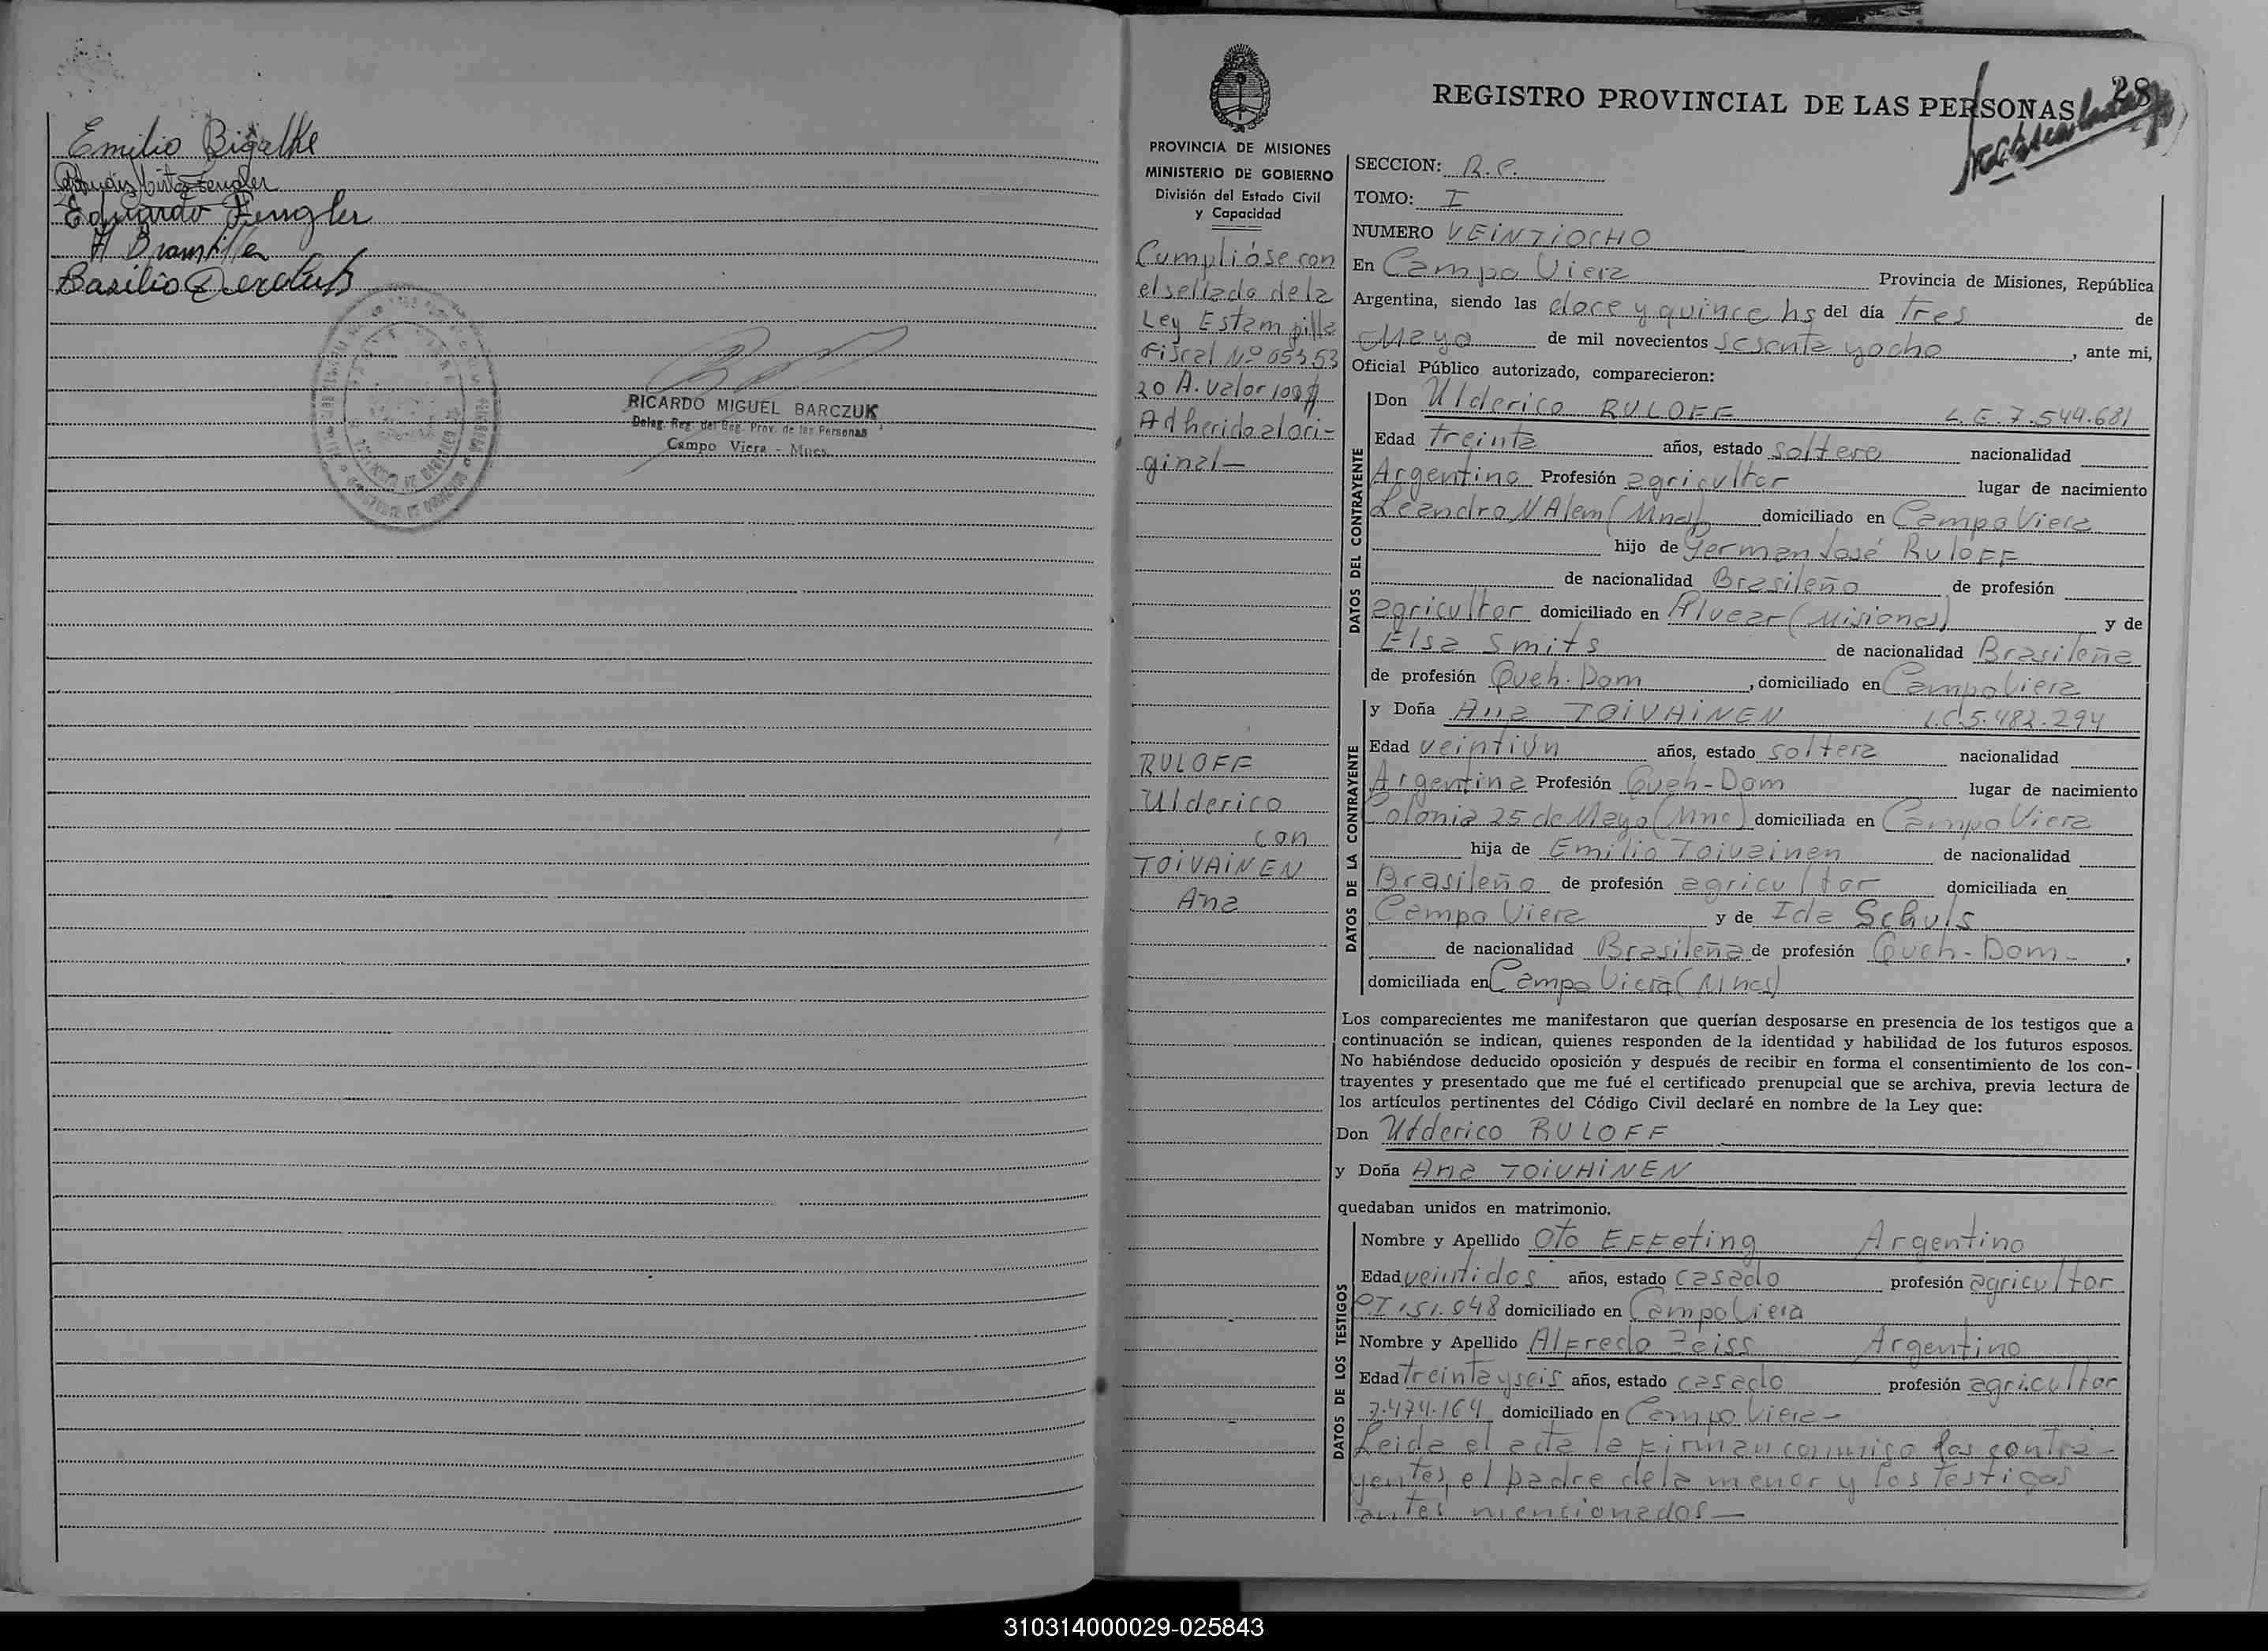 Emilio Bigalke
Eduardo Fengler
Basilio
RICARDO MIGUEL BARCZUK
Deleg. Reg. del Reg. Prov. de las Personas
Campo Viera - Mnes.
28
REGISTRO PROVINCIAL DE LAS PERSONAS
PROVINCIA DE MISIONES
MINISTERIO DE GOBIERNO
División del Estado Civil
y Capacidad
Cumplióse con
el sellado de la
Ley Estampilla
Fiscal Nº 05353
20 A. valor 100$
Adherido al ori-
ginal —
RULOFF
Ulderico
con
TOIVAINEN
Ana
SECCION: R.P.
TOMO: I
NUMERO VEINTIOCHO
En Campo Viera Provincia de Misiones, República
Argentina, siendo las doce y quince hs del día tres de
Mayo de mil novecientos sesenta y ocho, ante mi,
Oficial Público autorizado, comparecieron:
DATOS DEL CONTRAYENTE
Don Ulderico RULOFF L.E. 7.544.681
Edad treinta años, estado soltero nacionalidad
Argentino Profesión agricultor lugar de nacimiento
Leandro N Alem (Mnes) domiciliado en Campo Viera
hijo de German José RuloFF
de nacionalidad Brasileño de profesión
agricultor domiciliado en Alvear (Misiones) y de
Elsa Smits de nacionalidad Brasileña
de profesión Queh. Dom, domiciliado en Campo Viera
DATOS DE LA CONTRAYENTE
y Doña Ana TOIVAINEN L.C. 5.482.294
Edad veintiún años, estado soltera nacionalidad
Argentina Profesión Queh-Dom lugar de nacimiento
Colonia 25 de Mayo (Mne) domiciliada en Campo Viera
hija de Emilio Toivainen de nacionalidad
Brasileño de profesión agricultor domiciliada en
Campo Viera y de Ida Schuls
de nacionalidad Brasileña de profesión Queh-Dom-,
domiciliada en Campo Viera (Mnes)
Los comparecientes me manifestaron que querían desposarse en presencia de los testigos que a
continuación se indican, quienes responden de la identidad y habilidad de los futuros esposos.
No habiéndose deducido oposición y después de recibir en forma el consentimiento de los con-
trayentes y presentado que me fué el certificado prenupcial que se archiva, previa lectura de
los artículos pertinentes del Código Civil declaré en nombre de la Ley que:
Don Ulderico RULOFF
y Doña Ana TOIVAINEN
quedaban unidos en matrimonio.
DATOS DE LOS TESTIGOS
Nombre y Apellido Oto EFFeting Argentino
Edad veintidos años, estado casado profesión agricultor
151.048 domiciliado en Campo Viera
Nombre y Apellido AlFredo Zeiss Argentino
Edad treinta y seis años, estado casado profesión agricultor
7.474.164 domiciliado en Campo Viera-
Leida el acta la Firman conmigo los contra-
yentes, el padre de la menor y los testigos
antes mencionados —
310314000029-025843